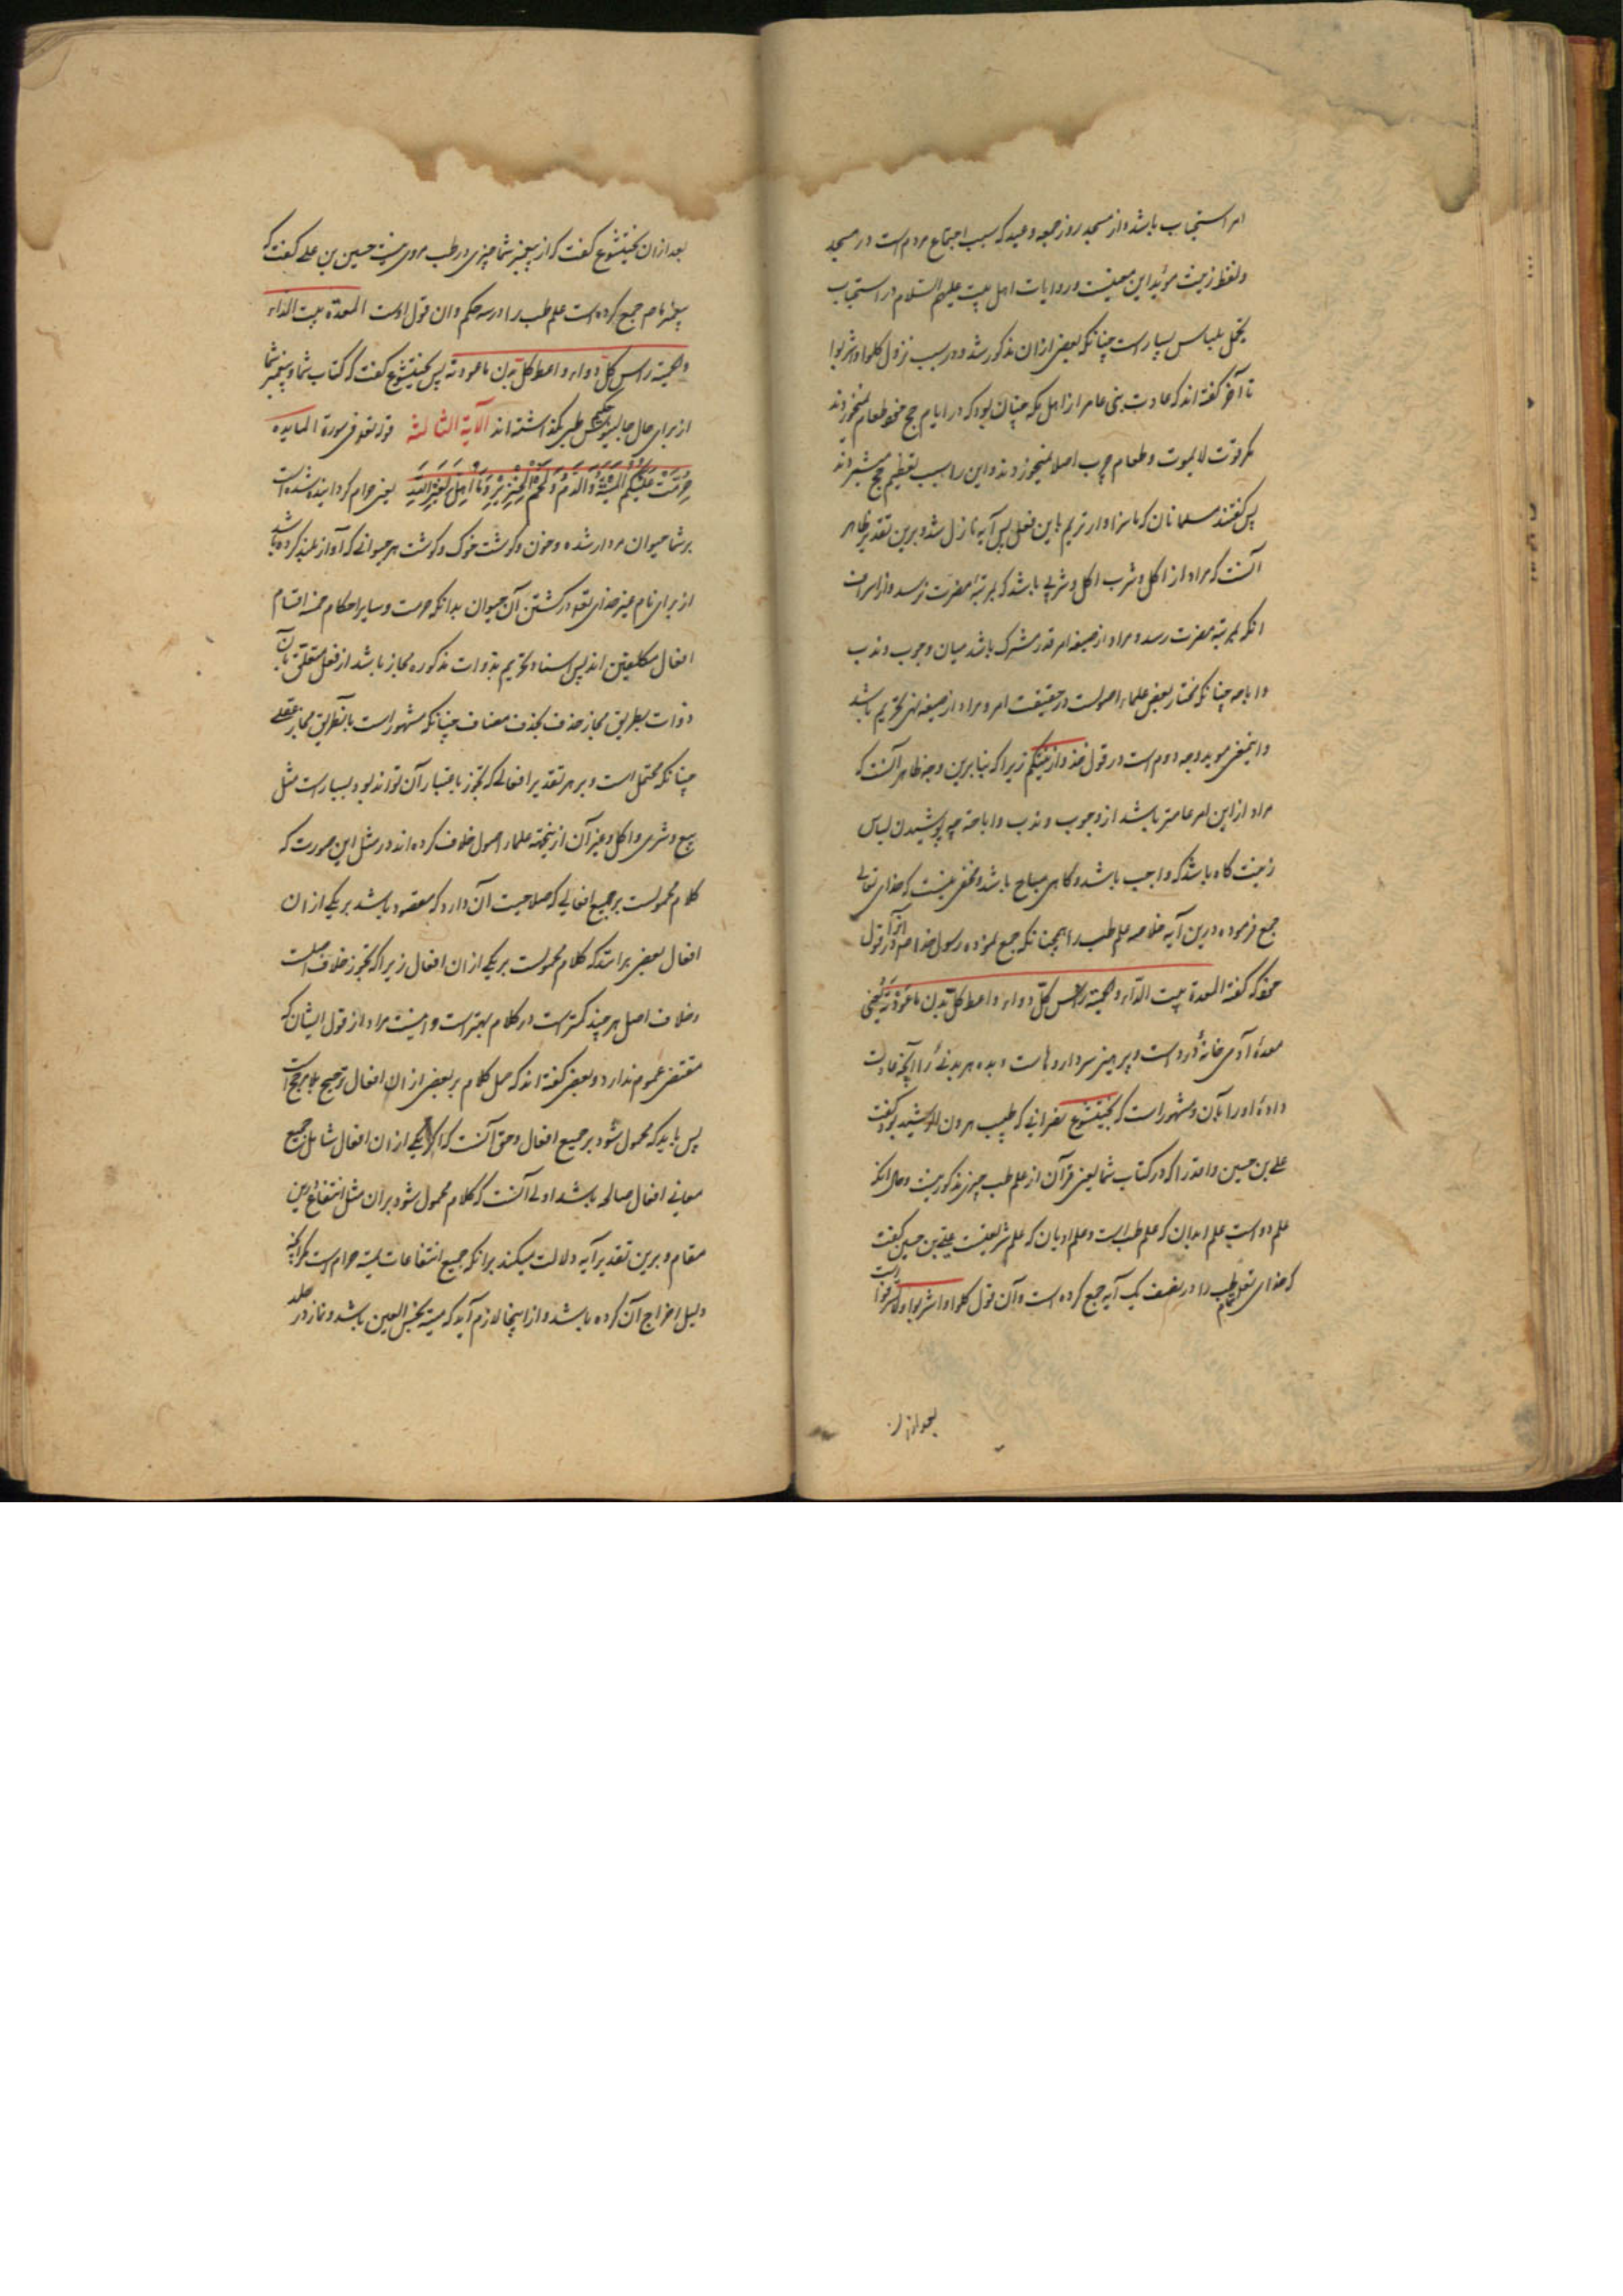 امر استحباب باشد و از مسجد روز جمعه و عید که سبب اجتماع مردم است در مسجد
و لفظ زینت مؤید این معنیست و روایات اهل بیت علیهم السلام در استحباب
تجمل بلباس بسیار است چنانکه بعضی ازان مذکور شد و در سبب نزول کلوا واشربوا
تا آخر گفته اند که عادت بنی عامر از اهل مکه چنان بود که در ایام حج طعام نمیخوردند
مگر قوت لایموت و طعام چرب اصلا نمیخوردند و این را سبب تعظیم حج میشمردند
پس گفتند مسلمانان که ما سزاوارتریم باین فعل پس آیه نازل شد و برین تقدیر ظاهر
آنست که مراد از اکل و شرب اکل و شربی باشد که بمرتبهٔ مضرت نرسد و از اسراف
آنکه بمرتبه مضرت رسد و مراد از صیغه امر قدر مشترک باشد میان وجوب و ندب
و اباحه چنانکه مختار بعض علماء اصولست در حقیقت امر و مراد از صیغه نهی تحریم باشد
و اینمعنی موید وجه دوم است در قول خذوا زینتکم زیرا که بنابرین وجه ظاهر آنست که
مراد ازاین امر عامتر باشد از وجوب و ندب و اباحة چه پوشیدن لباس
زینت گاه باشد که واجب باشد و گاهی مباح باشد و مخفی نیست که خدای تعالی
جمع فرموده درین آیه خلاصه علم طب را همچنانکه جمع نموده رسول خدا صم آنرا در قول
خود که گفته المعدة بیت الداء والحمیة راس کل دواء واعط کل بدن ما عودته یعنی
معدهٔ آدمی خانهٔ درد است و پرهیز سر داروهاست و بده هر بدنی را آنچه عادت
دادهٔ او را بآن و مشهور است که بختیشوع نصرانی که طبیب هرون الرشید بود گفت
علی بن حسین واقد را که در کتاب شما یعنی قرآن از علم طب چیزی مذکور نیست و حال آنکه
علم دو است علم ابدان که علم طب است و علم ادیان که علم شریعتست علی بن حسین گفت
که خدای تعالی تمام طب را در نصف یک آیه جمع کرده است و آن قول کلوا واشربوا ولا تسرفوا است
بعد ازان
بعد ازان بختیشوع گفت که از پیغمبر شما چیزی در طب مروی نیست حسین بن علی گفت که
پیغمبر ما صم جمع کرده است علم طب را در سه حکم و ان قول اوست المعدة بیت الداء
والحمیة راس کل دواء واعط کل بدن ما عودته پس بختیشوع گفت که کتاب شما و پیغمبر شما
از برای حال جالینوس حکیم طبی نگذاشته اند الآیة الثالثة قوله تعو فی سورة المایده
حُرِّمَتْ عَلَیْکُمُ الْمَیْتَةُ وَالدَّمُ وَلَحْمُ الْخِنْزِیْرِ وَمَا اُهِلَّ لِغَیْرِ اللهِ یعنی حرام گردانیده شده است
بر شما حیوان مردار شده و خون و گوشت خوک و گوشت هر حیوانی که آواز بلند کرده باشند
از برای نام غیر خدای تعو در کشتن آن حیوان بدانکه حرمت و سایر احکام خمسه اقسام
افعال مکلفین اند پس اسناد تحریم بذوات مذکوره مجاز باشد از فعل متعلق بآن
ذوات بطریق مجاز حذف بحذف مضاف چنانکه مشهور است یا بطریق مجاز عقلی
چنانکه محتمل است و بر هر تقدیر افعالی که تجوز باعتبار آن تواند بود بسیار است مثل
بیع و شری و اکل و غیر آن ازینجهة علماء اصول خلاف کرده اند در مثل این صورت که
کلام محمولست بر جمیع افعالی که صلاحیت آن دارد که مقصود باشد بر یکی ازان
افعال بعضی برانند که کلام محمولست بر یکی ازان افعال زیرا که تجوز خلاف اصلست
و خلاف اصل هر چند کمتر است در کلام بهتر است و اینست مراد از قول ایشان که
مقتضی عموم ندارد و بعضی گفته اند که حمل کلام بر بعضی ازان افعال ترجیح بلا مرجح است
پس باید که محمول شود بر جمیع افعال و حق آنست که اگر یکی ازان افعال شامل جمیع
معانی افعال صالحه باشد اولی آنست که کلام محمول شود بران مثل انتفاع درین
مقام و برین تقدیر آیه دلالت میکند برانکه جمیع انتفاعات میته حرام است مگر آنچه
دلیل اخراج آن کرده باشد و از اینجا لازم آید که میته نجس العین باشد و نماز در جلد